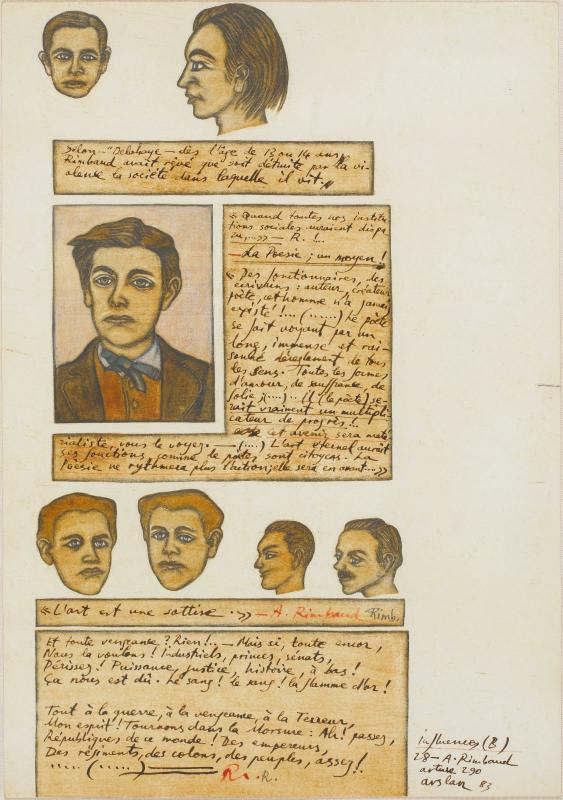 Selon "Delahaye — dès l'âge de 13 ou 14 ans,
Rimbaud avait rêvé que soit détruite par la vi-
olence la société dans laquelle il vit.
« Quand toutes nos institu
tions sociales auraient dispa
ru,...» — R. !..
— La Poesie ; un moyen !
« Des fonctionnaires, des
écrivains : auteur, créateur
poète, cet homme n'a jamais
existé !... (......) Le poète
se fait voyant par un
long, immense et rai-
sonné dérèglement de tous
les sens. Toutes les formes
d'amour, de souffrance, de
folie ;(....).. (Il (le poète) se-
rait vraiment un multipli-
cateur de progrès !...
cet avenir sera maté-
rialiste, vous le voyez. — (....) L'art éternel aurait
ses fonctions, comme les poètes sont citoyens. La
Poèsie ne rythmera plus l'action; elle sera en avant....»
« L'art est une sottise .» — A. Rimbaud Rimb.
Et toute vengeance ? Rien !.. — Mais si, toute encor,
Nous la voulons ! Industriels, princes, sénats,
Périssez ! Puissance, justice, histoire, à bas !
Ça nous est dû. Le sang ! le sang ! la flamme d'or !
Tout à la guerre, à la vengeance, à la Terreur,
Mon esprit ! Tournons dans la Morsure : Ah ! passez,
Républiques de ce monde ! Des empereurs,
Des régiments, des colons, des peuples, assez !
..... (.....) — R. .R.
influences (B)
28 — A. Rimbaud
arture 290
arslan 83